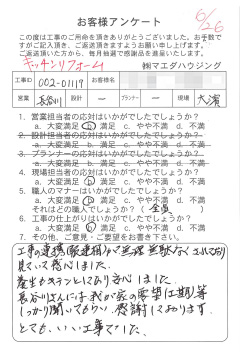 6/26
お客様アンケート
この度は工事のご用命を頂きありがとうございます。お手数で
すがご記入頂き、ご返送頂きますようお願い申し上げます。
ご返送頂いた方から、毎月抽選で感謝品を進呈いたします。
キッチンリフォーム
㈱マエダハウジング
工事ID 002-01119 お客様名
営業 長谷川 設計 ー プランナー ー 現場 大濱
1. 営業担当の応対はいかがでしたでしょうか?
a. 大変満足 b. 満足 c. やや不満 d. 不満
2. 設計担当者の応対はいかがでしたでしょうか?
a. 大変満足 b. 満足 c. やや不満 d. 不満
3. プランナーの応対はいかがでしたでしょうか?
a. 大変満足 b. 満足 c. やや不満 d. 不満
4. 現場担当者の応対はいかがでしたでしょうか?
a. 大変満足 b. 満足 c. やや不満 d. 不満
5. 職人のマナーはいかがでしたでしょうか?
a. 大変満足 b. 満足 c. やや不満 d. 不満
それはどの職人でしょうか?( 全員 )
6. 工事の仕上がりはいかがでしたでしょうか?
a. 大変満足 b. 満足 c. やや不満 d. 不満
7. その他、ご意見・ご要望をお書き下さい。
工事の連携
見ていて感心しました。
養生もキチンとしてあり安心しました。
長谷川さんには我が家の要望は期等
しっかり聞いてもらい感謝しております。
とても、いい工事でした。